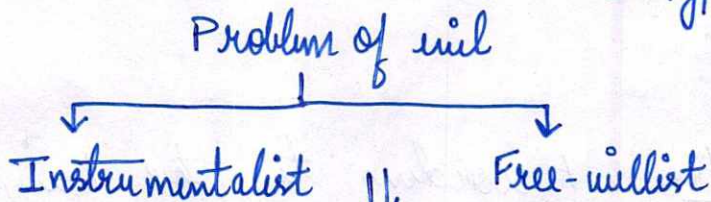 Problem of evil
Instrumentalist Free-willist